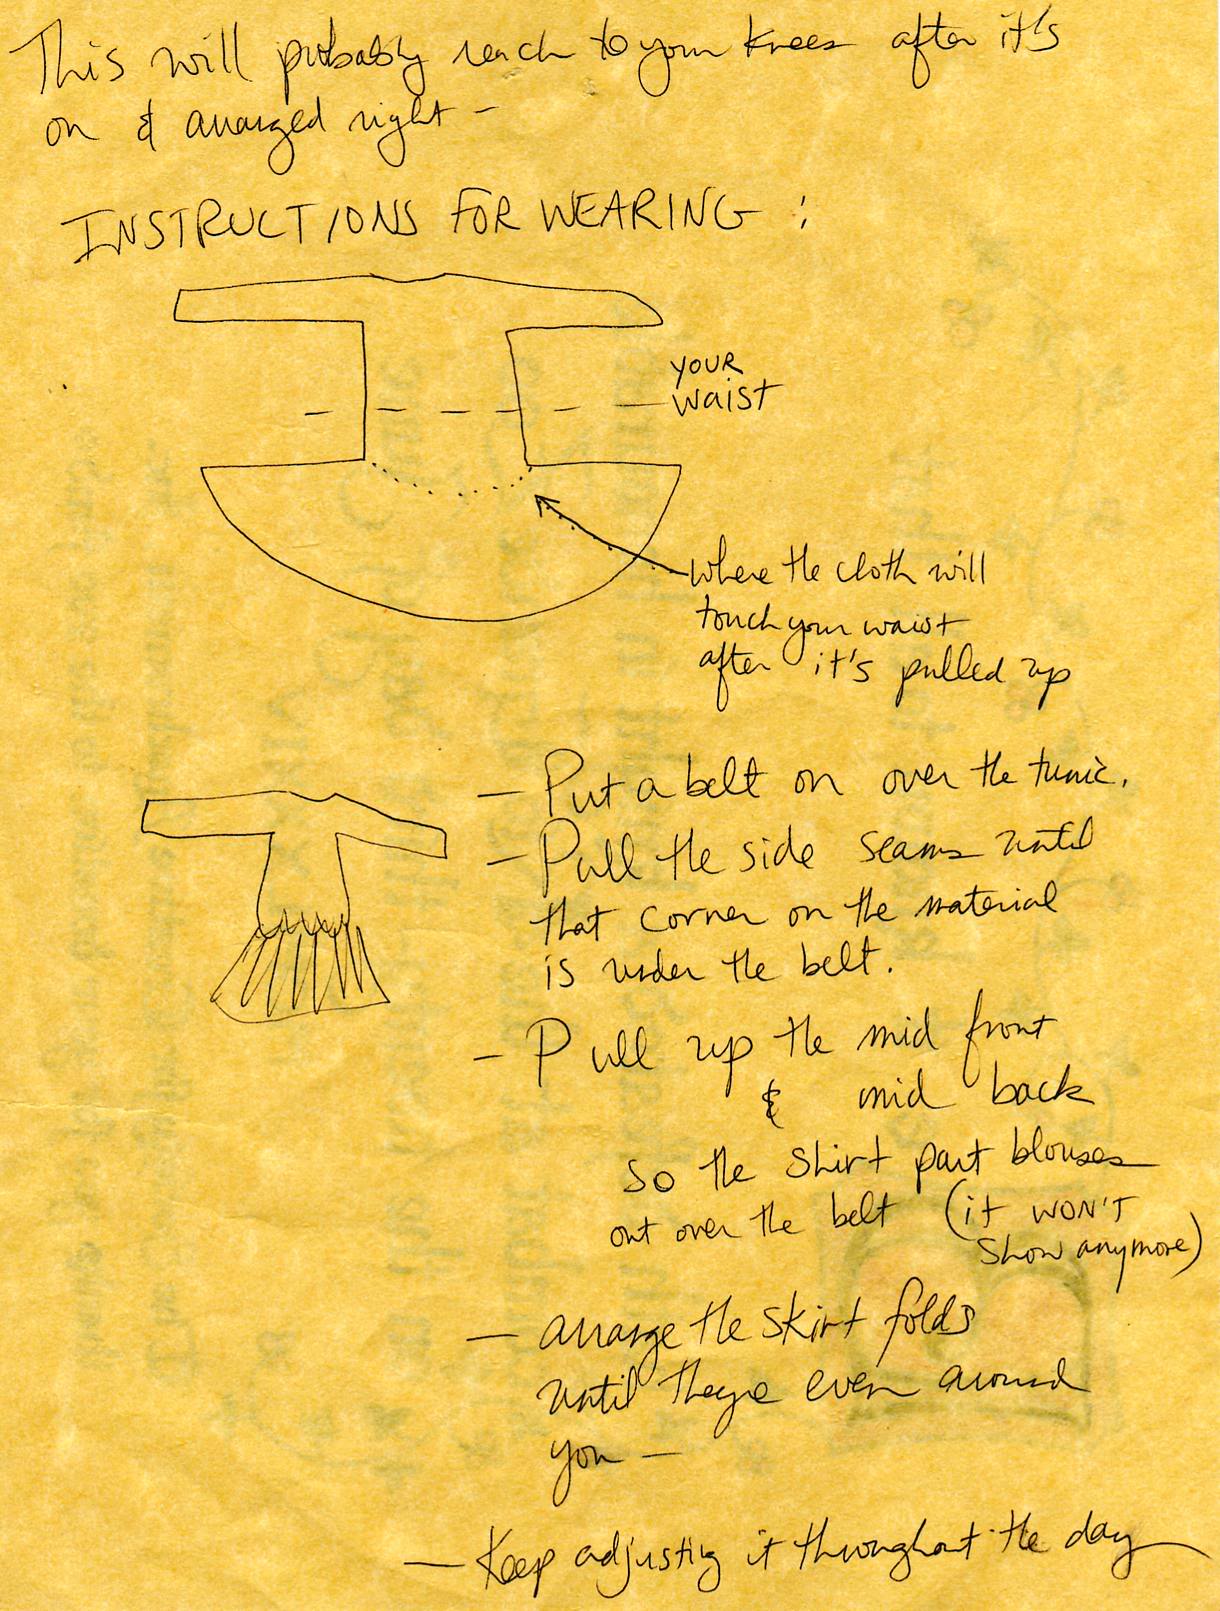 This will probably reach to your knees after it's
on & arranged right -
INSTRUCTIONS FOR WEARING :
YOUR
waist
where the cloth will
touch your waist
after it's pulled up
- Put a belt on over the tunic.
- Pull the side seams until
that corner on the material
is under the belt.
- Pull up the mid front
& mid back
so the shirt part blouses
out over the belt (it WON'T
show anymore)
- arrange the skirt folds
until they're even around
you -
- Keep adjusting it throughout the day